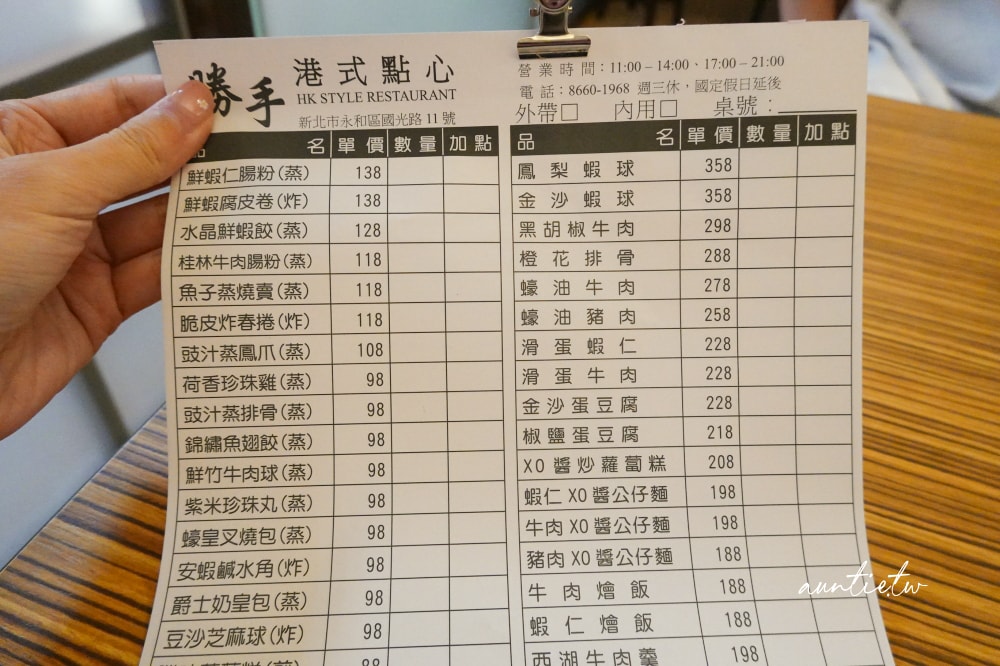 勝手 港式點心
HK STYLE RESTAURANT
新北市永和區國光路 11 號
營業時間：11:00 – 14:00、17:00 – 21:00
電話：8660-1968 週三休，國定假日延後
外帶□ 內用□ 桌號：
品 名 單價 數量 加點
鮮蝦仁腸粉(蒸) 138
鮮蝦腐皮卷(炸) 138
水晶鮮蝦餃(蒸) 128
桂林牛肉腸粉(蒸) 118
魚子蒸燒賣(蒸) 118
脆皮炸春捲(炸) 118
豉汁蒸鳳爪(蒸) 108
荷香珍珠雞(蒸) 98
豉汁蒸排骨(蒸) 98
錦繡魚翅餃(蒸) 98
鮮竹牛肉球(蒸) 98
紫米珍珠丸(蒸) 98
蠔皇叉燒包(蒸) 98
安蝦鹹水角(炸) 98
爵士奶皇包(蒸) 98
豆沙芝麻球(炸) 98
品 名 單價 數量 加點
鳳梨蝦球 358
金沙蝦球 358
黑胡椒牛肉 298
橙花排骨 288
蠔油牛肉 278
蠔油豬肉 258
滑蛋蝦仁 228
滑蛋牛肉 228
金沙蛋豆腐 228
椒鹽蛋豆腐 218
XO醬炒蘿蔔糕 208
蝦仁XO醬公仔麵 198
牛肉XO醬公仔麵 198
豬肉XO醬公仔麵 188
牛肉燴飯 188
蝦仁燴飯 188
西湖牛肉羹 198
auntie.tw